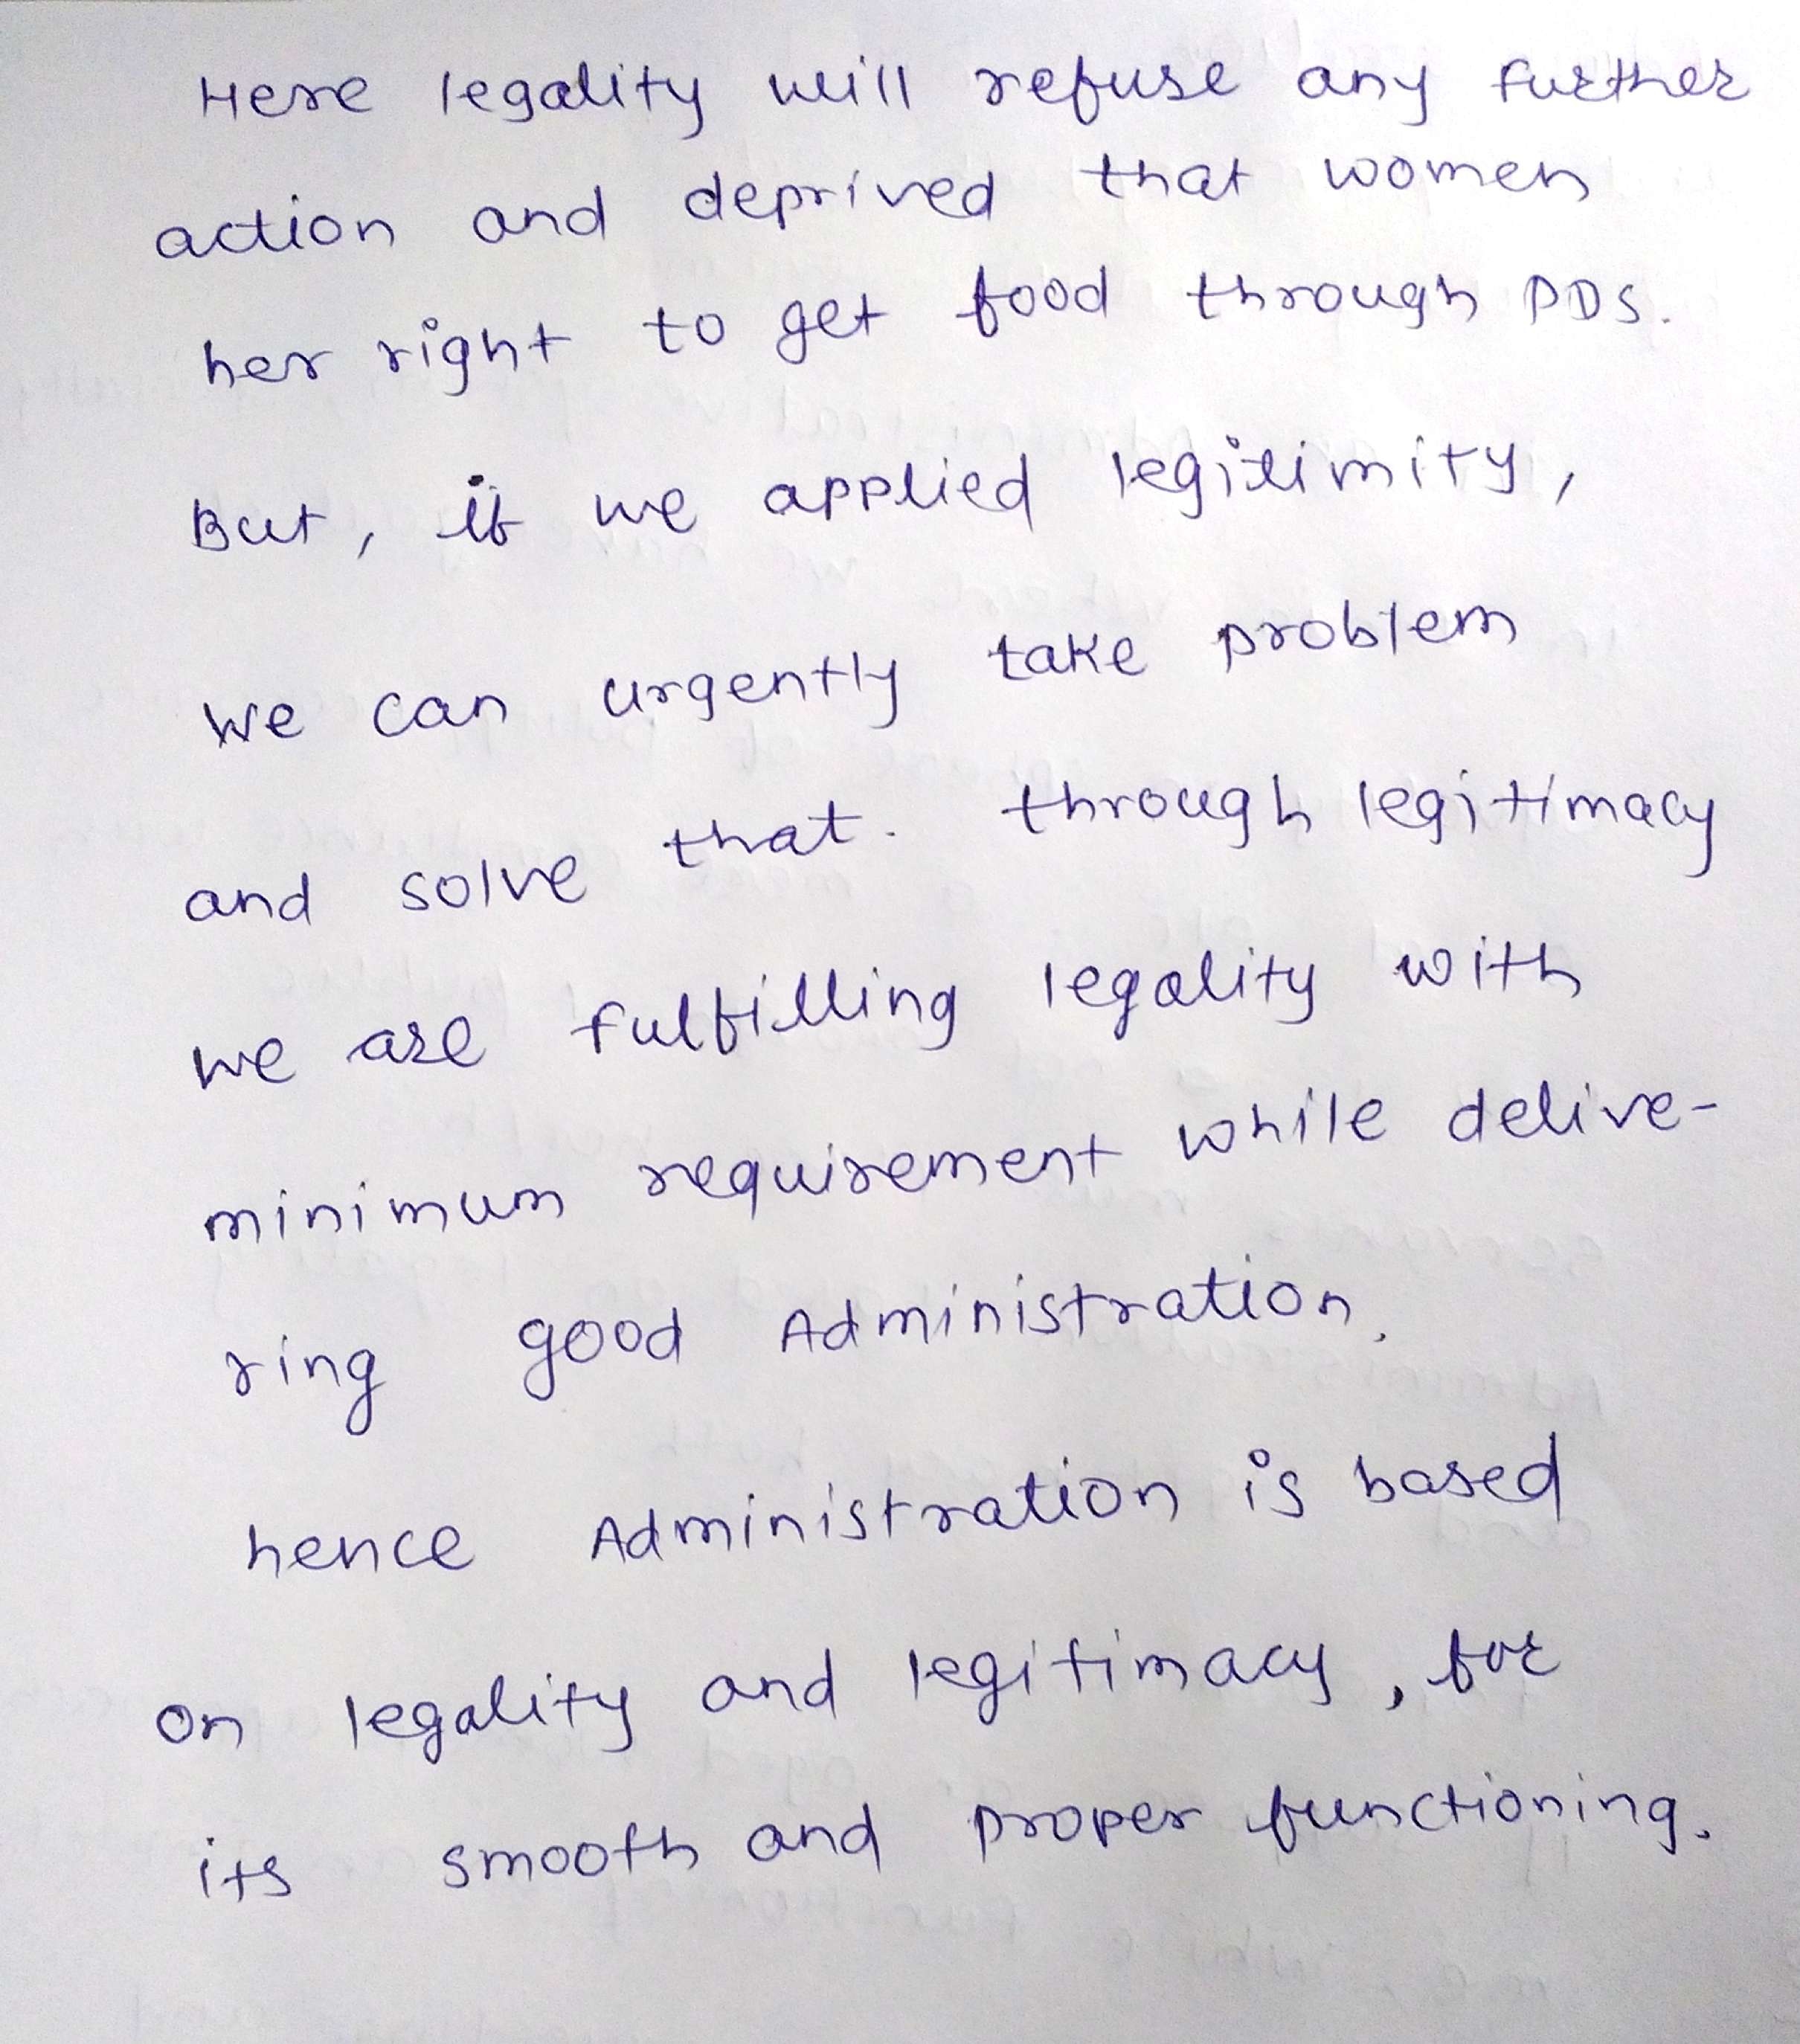 Here legality will refuse any further
action and deprived that women
her right to get food through PDS.
But, if we applied legitimity,
we can urgently take problem
and solve that. through legitimacy
we are fulfilling legality with
minimum requirement while delive-
ring good Administration.
hence Administration is based
on legality and legitimacy, for
its smooth and proper functioning.